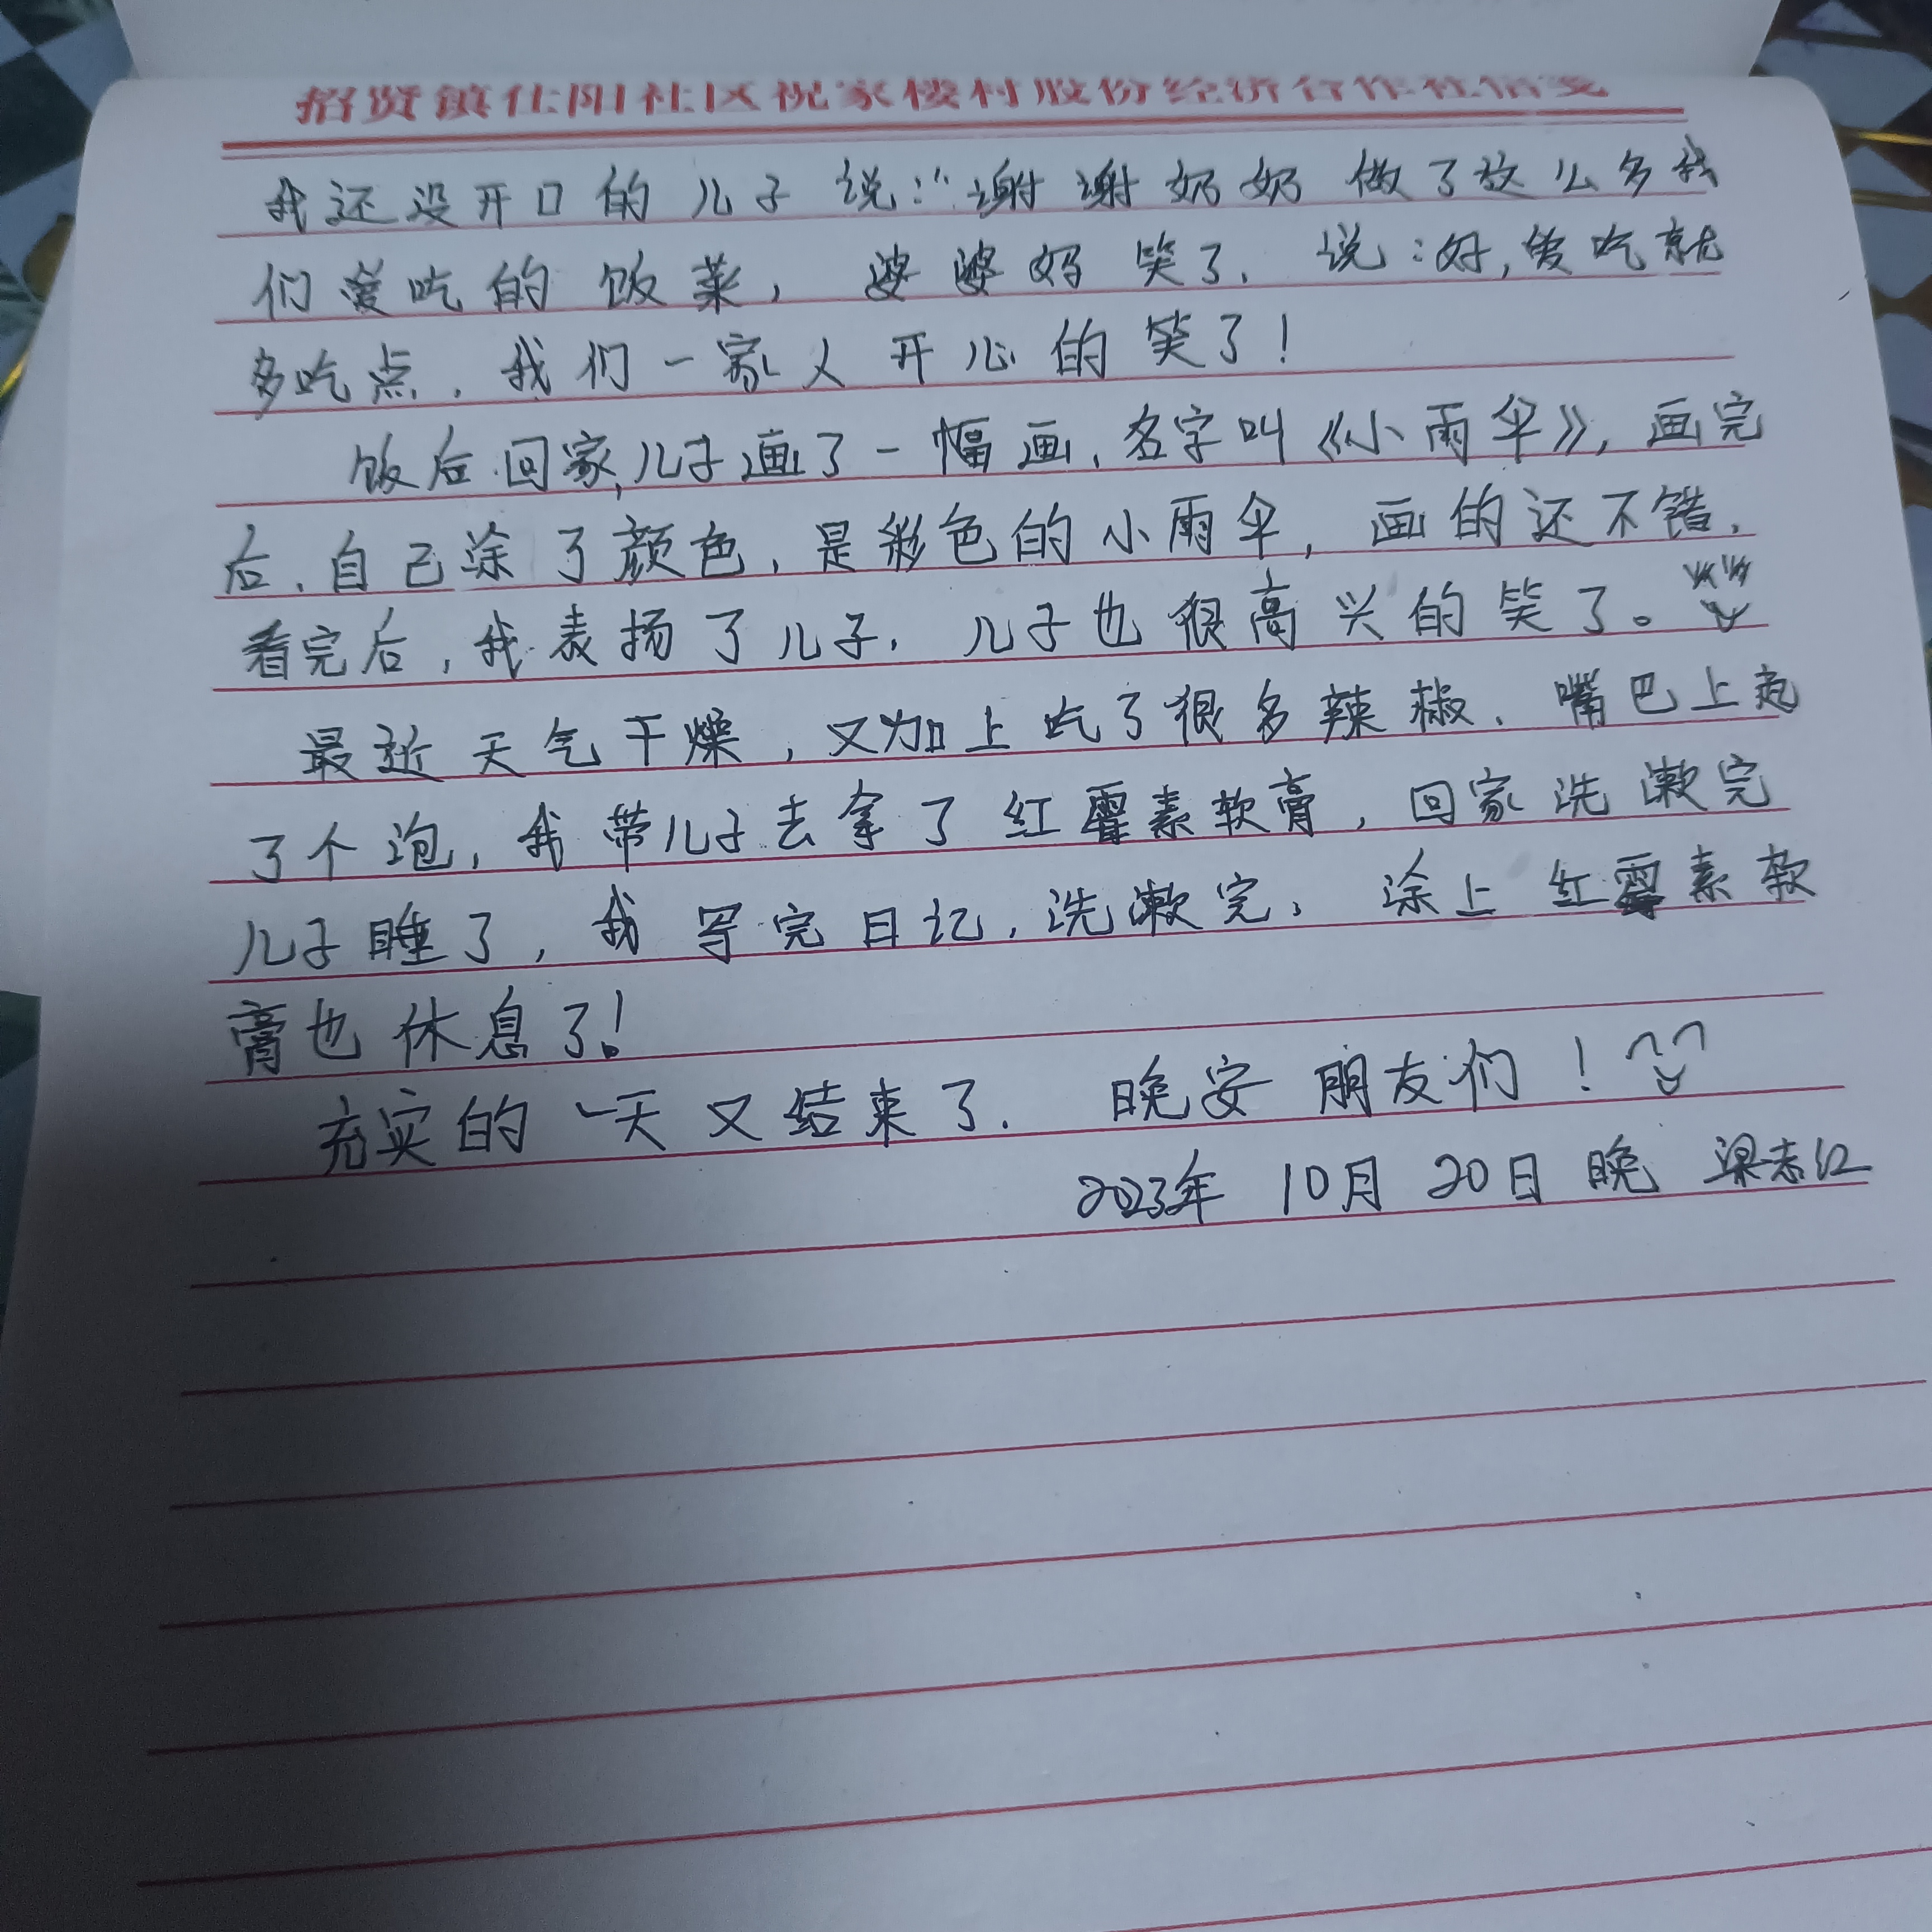 招贤镇仕阳社区祝家楼村股份经济合作社信笺
我还没开口的儿子说:“谢谢奶奶做了这么多我
们爱吃的饭菜,婆婆妈笑了.说:好,爱吃就
多吃点.我们一家人开心的笑了!
饭后回家,儿子画了一幅画,名字叫《小雨伞》,画完
后,自己涂了颜色,是彩色的小雨伞,画的还不错.
看完后,我表扬了儿子.儿子也很高兴的笑了。
最近天气干燥,又加上吃了很多辣椒.嘴巴上起
了个泡,我带儿子去拿了红霉素软膏,回家洗漱完
儿子睡了,我写完日记,洗漱完,涂上红霉素软
膏也休息了!
充实的一天又结束了.晚安朋友们!
2023年10月20日晚 梁志江